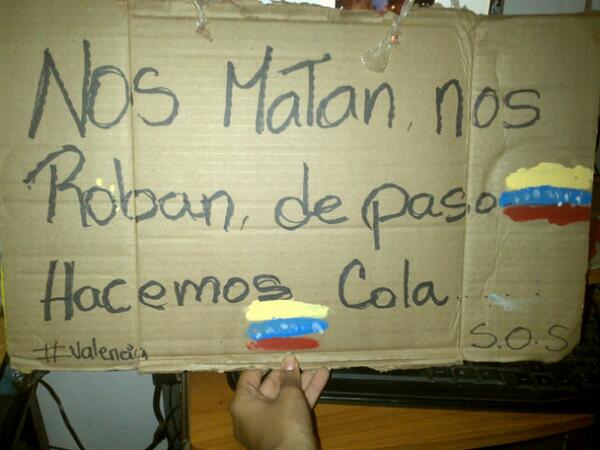 Nos Matan, nos
Roban, de paso
Hacemos Cola......
#Valencia
S.O.S